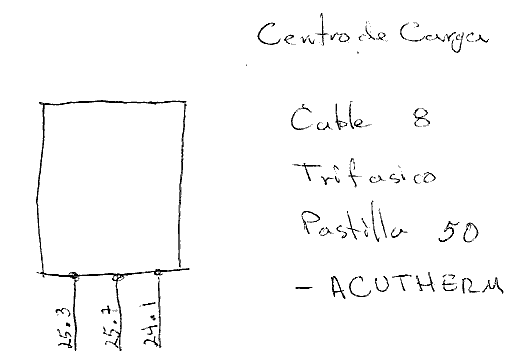 Centro de Carga
Cable 8
Trifasico
Pastilla 50
- ACUTHERM
25.3
25.7
24.1